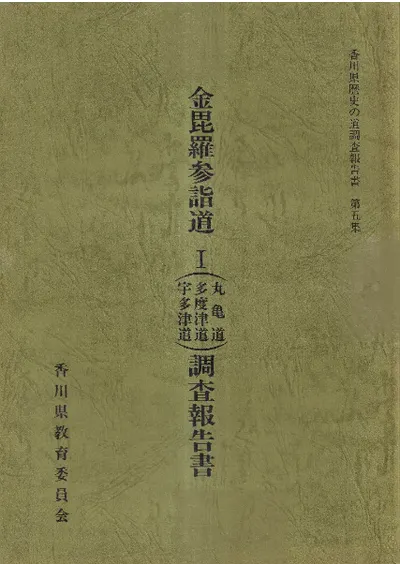 香川県歴史の道調査報告書 第五集
金毘羅参詣道 I (丸亀道
多度津道
宇多津道) 調査報告書
香川県教育委員会